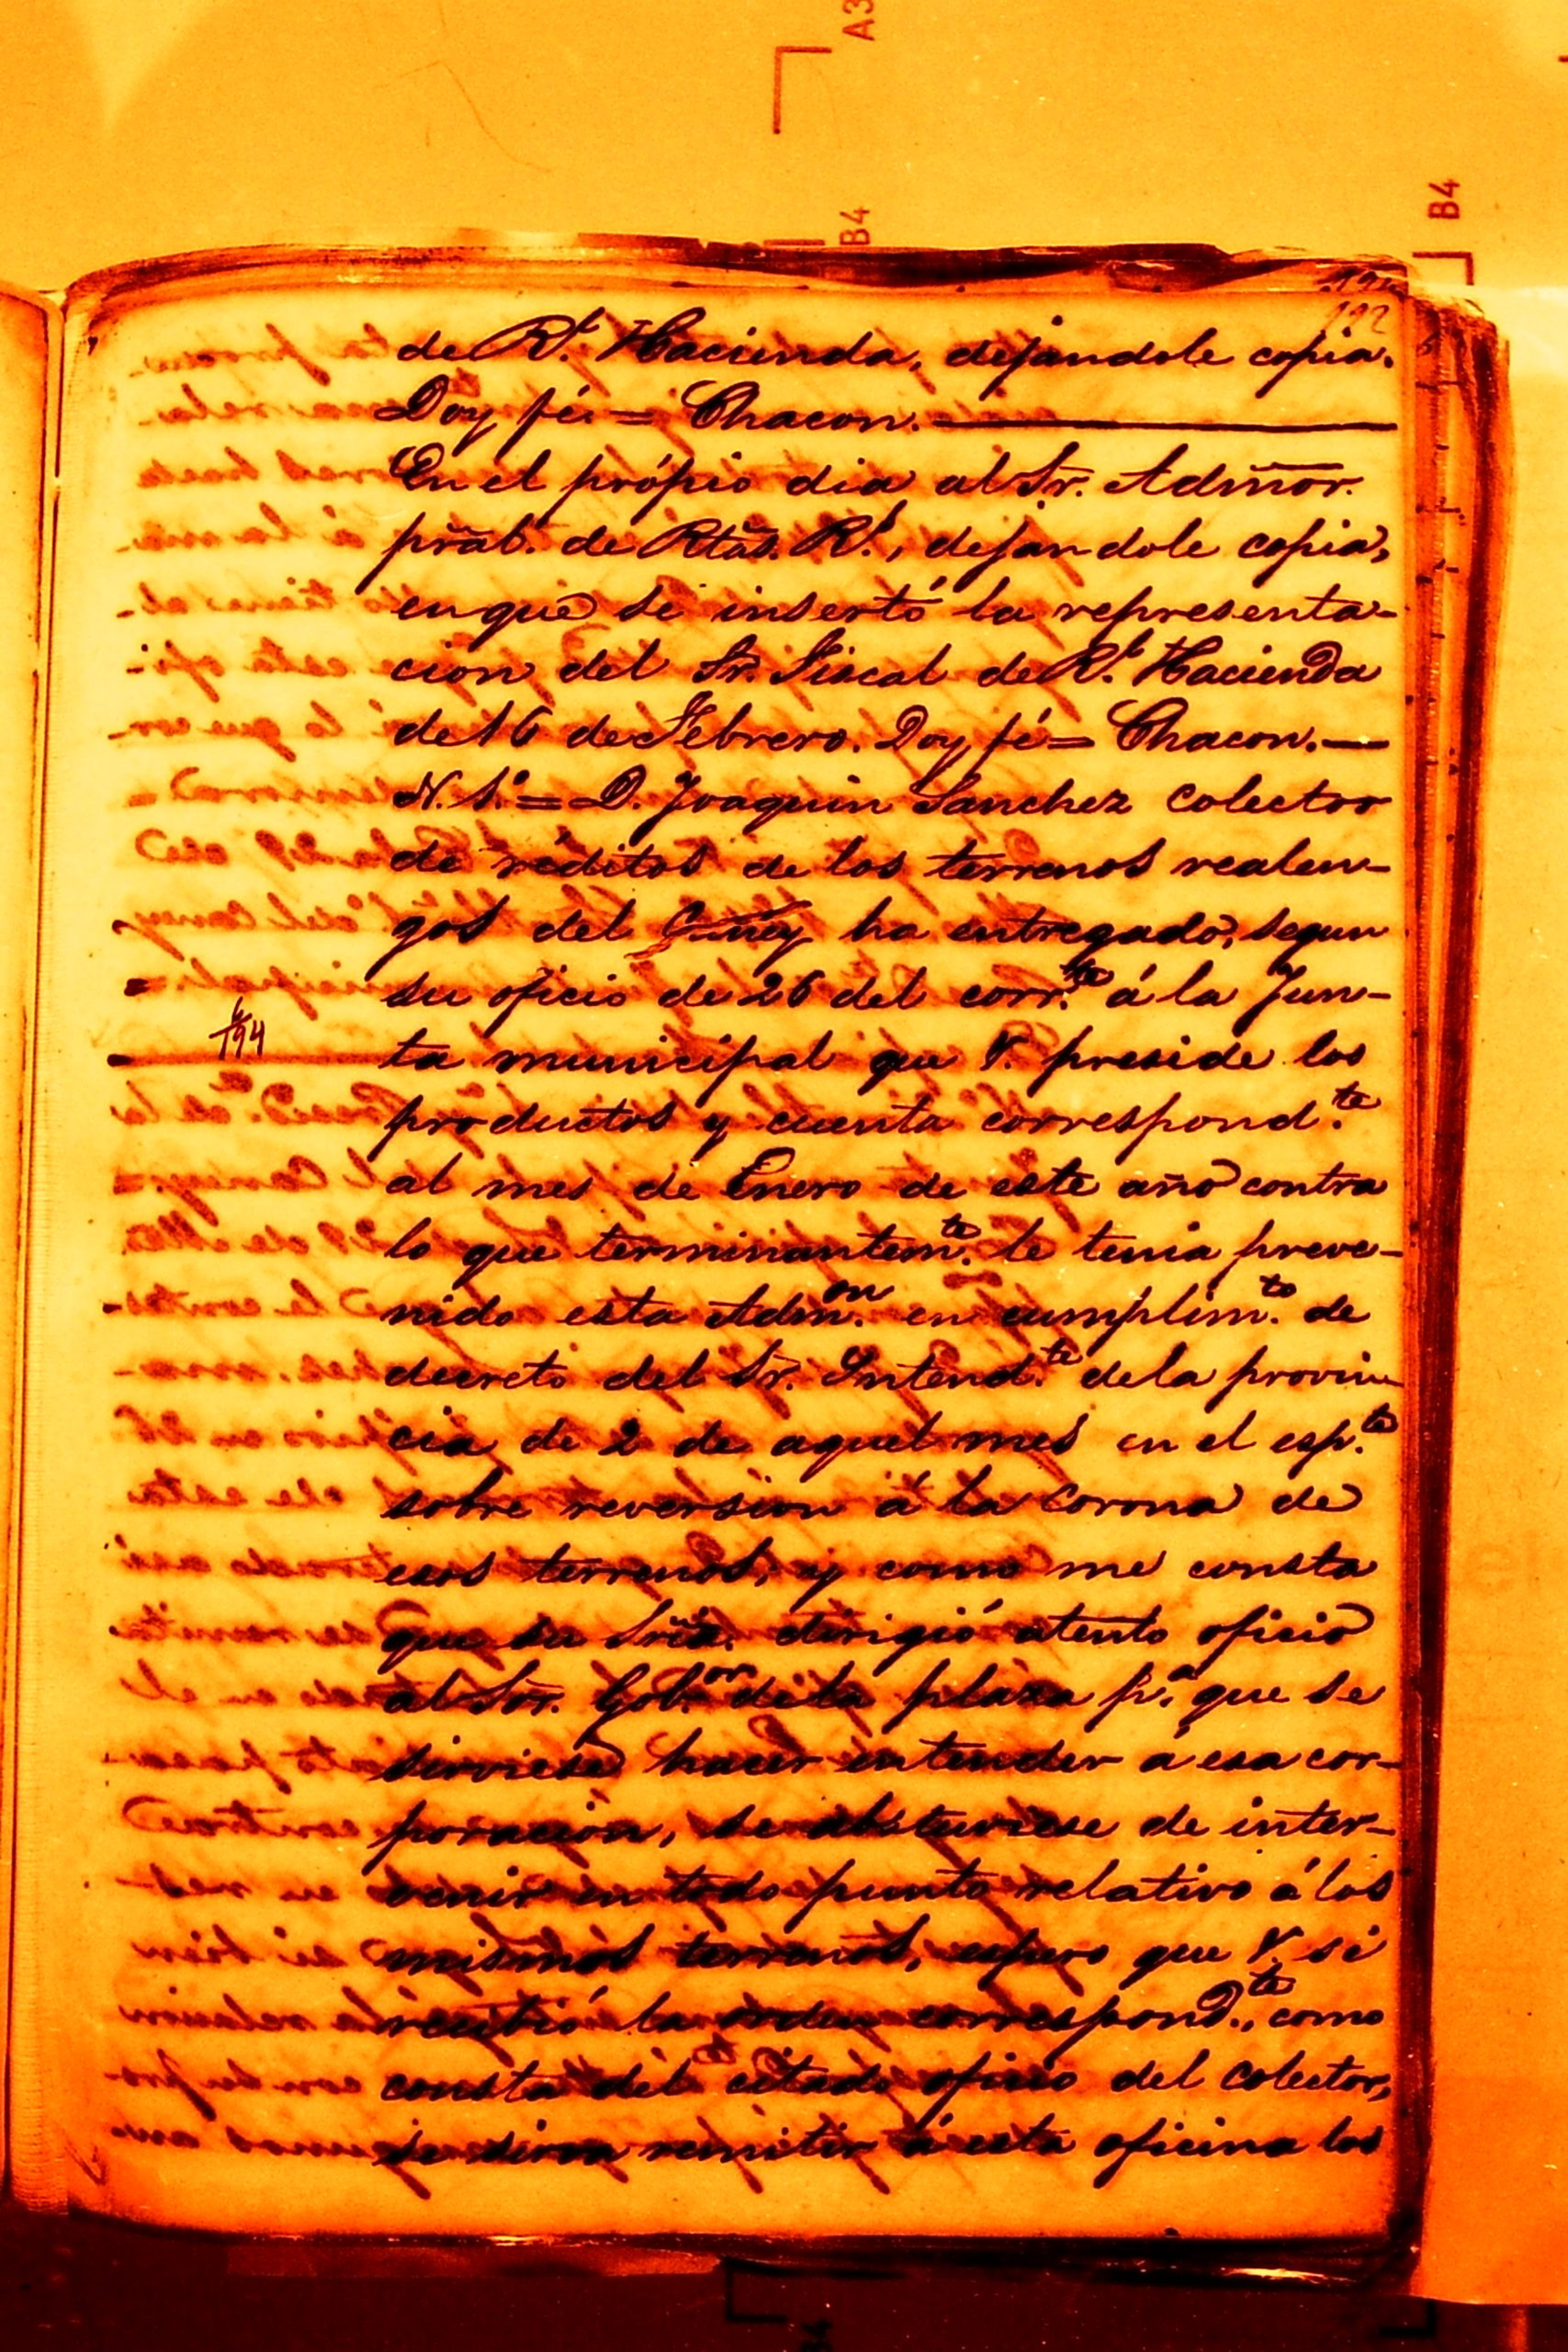 A3
B4
B4
192
de Rl. Hacienda, dejandole copia.
Doy fé. = Chacon.
En el própio dia al Sr. Admor.
pral. de Rtas. Rs., dejandole copia,
en que se insertó la representa-
cion del Sr. Fiscal de Rl. Hacienda
de 16 de Febrero. Doy fé = Chacon. —
N. 1.º = D. Joaquin Sanchez Colector
de réditos de los terrenos realen-
gos del Caney ha entregado, segun
su oficio de 26 del corr.te á la Jun-
194
ta municipal que V. preside los
productos y cuenta correspond.te
al mes de Enero de este año contra
lo que terminantem.te le tenia preve-
nido esta Adm.on en cumplim.to de
decreto del Sr. Intend.te de la provin-
cia de 2 de aquel mes en el esp.te
sobre reversion á la Corona de
esos terrenos, y como me consta
que su Sria. dirigió atento oficio
al Sor. Gob.or de la plaza p.a que se
sirviese hacer entender á esa cor-
poracion, se abstuviese de inter-
venir en todo punto relativo á los
mismos terrenos, espero que V. si
recibió la orden correspond.te, como
consta del citado oficio del colector,
se sirva remitir á esta oficina los